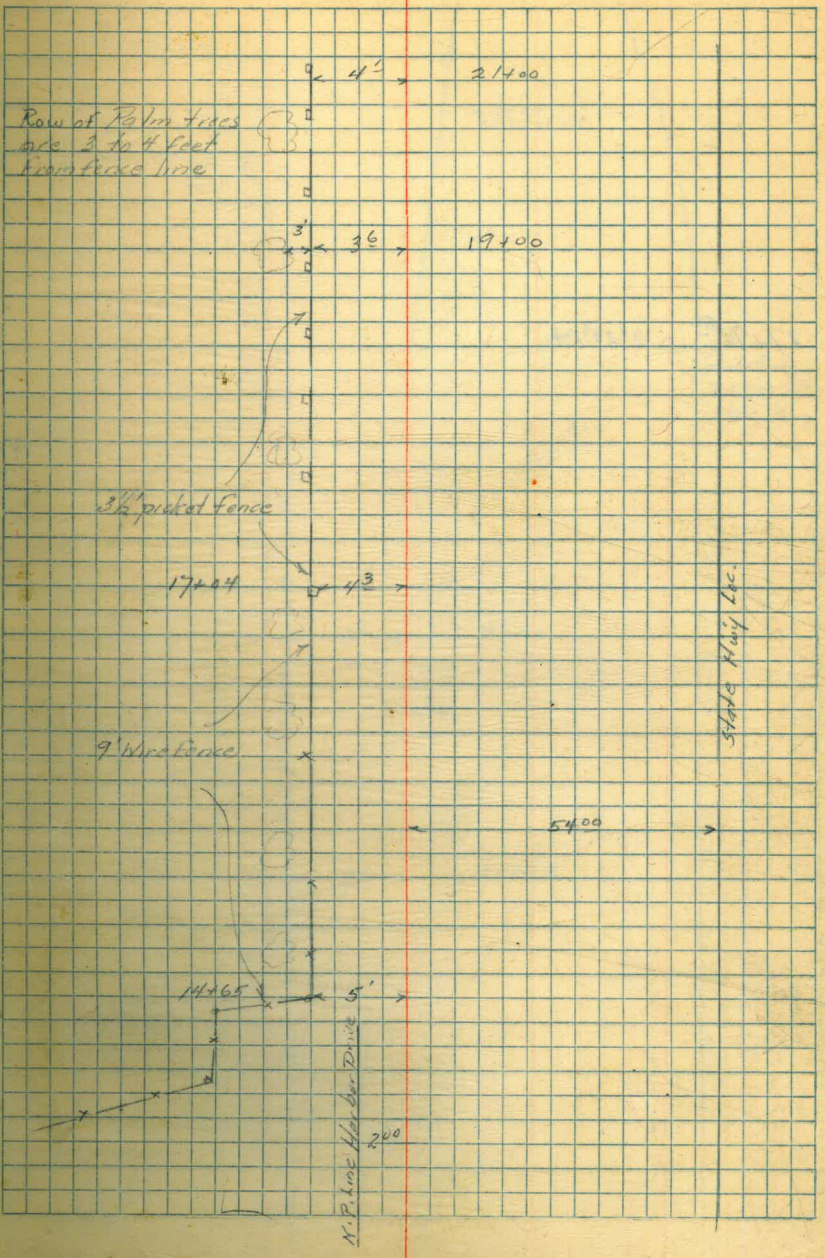 4' 21+00
Row of Palm trees
are 3 to 4 feet
From fence line
3' 3⁶ 19+00
3½' picket fence
17+04 4³
State Hwy Loc.
9' Wire fence
54⁰⁰
14+65 5'
N.P. Line Harbor Drive
2⁰⁰